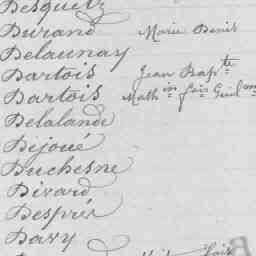 Durand Marie Denis
Delaunay
Dartois Jean Bapte
Dartois Mathin fois Guilem
Delalande
Dijoué
Duchesne
Dévard
Desprér
Davy